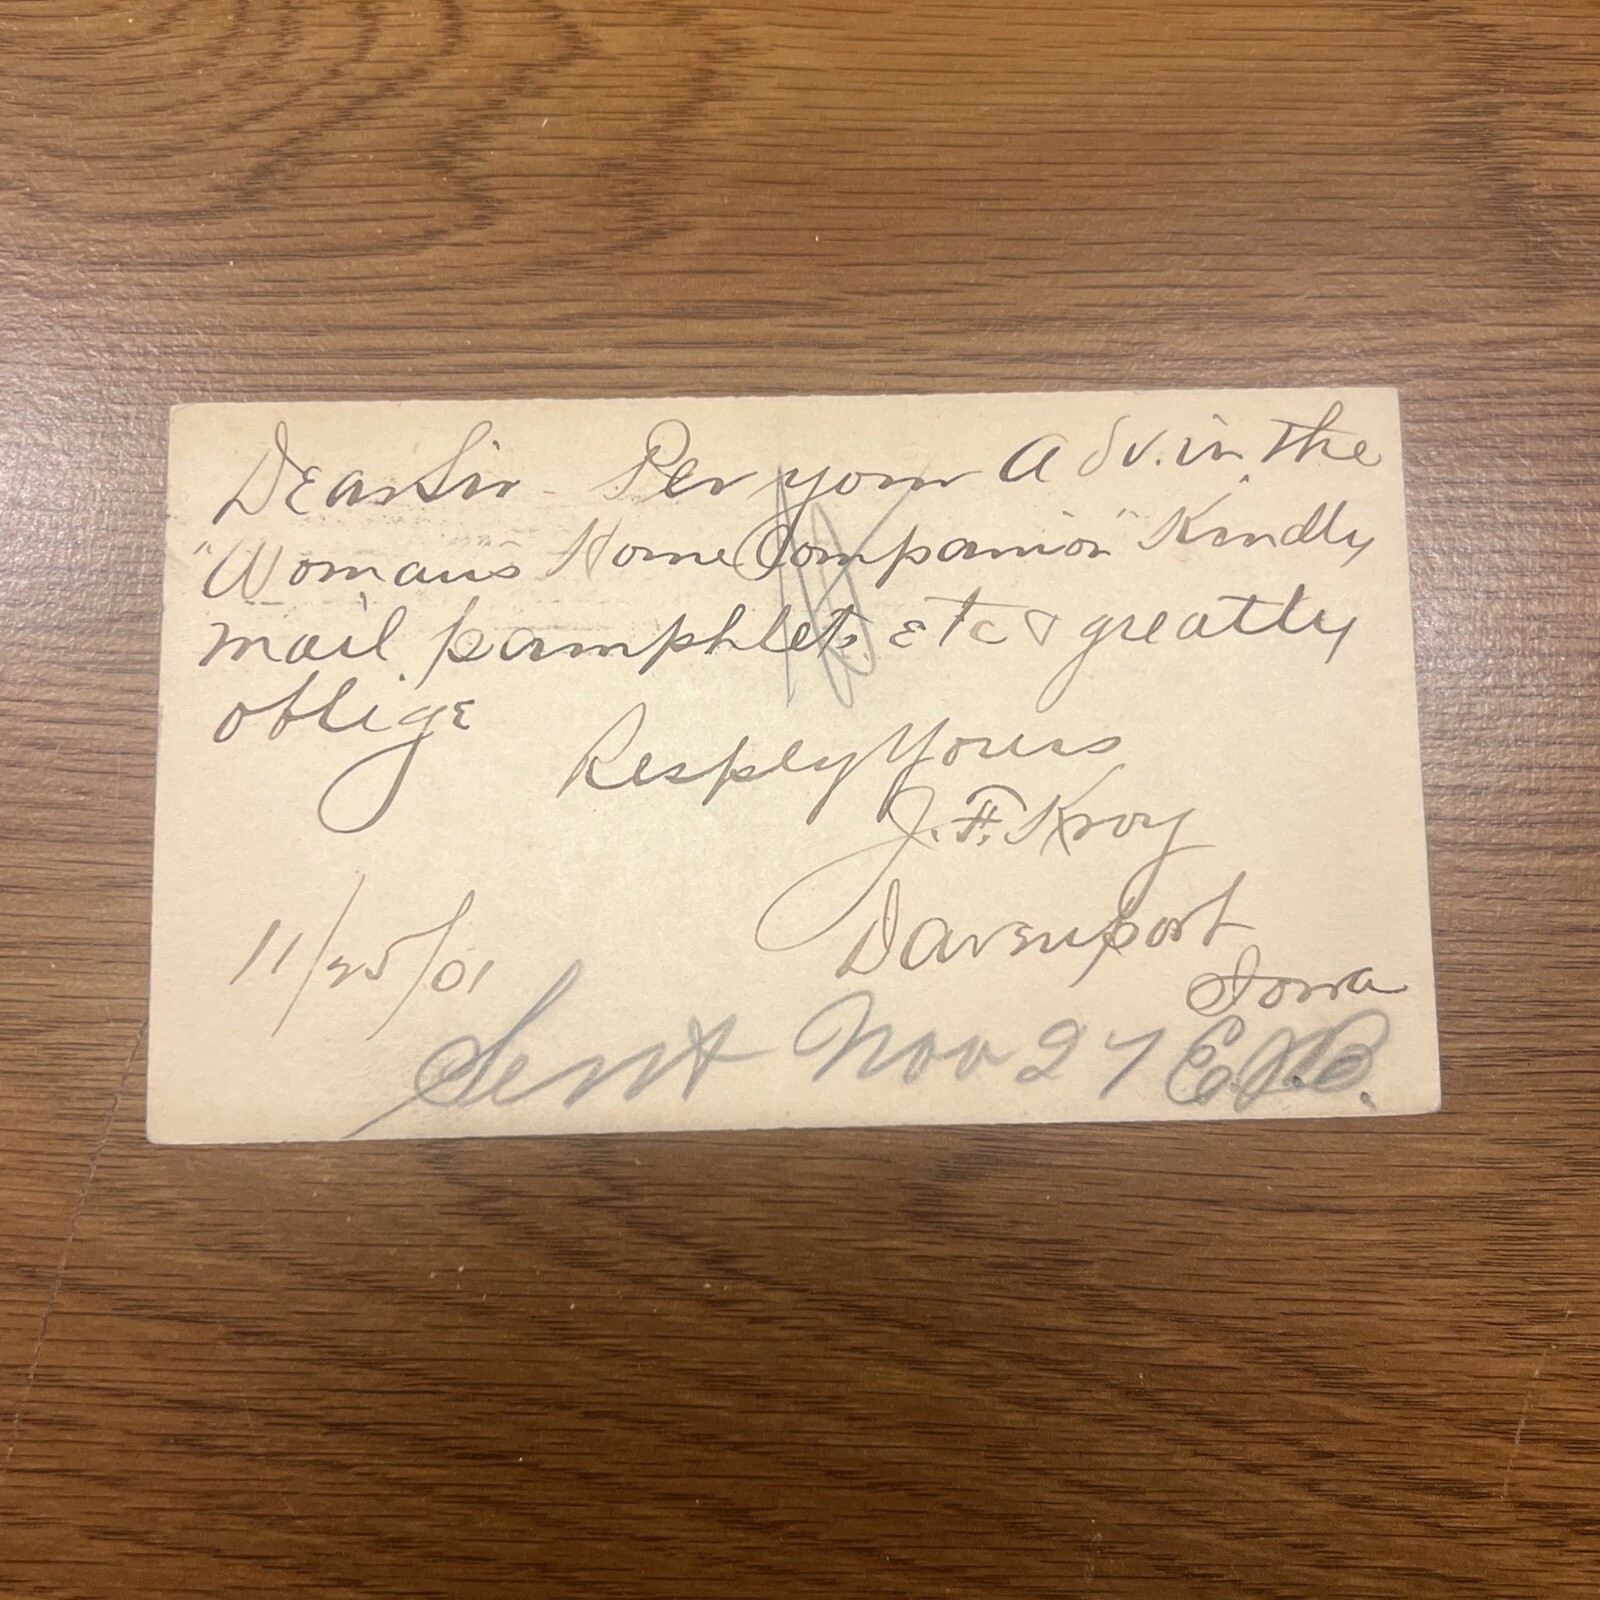 Dear Sir - Per your Adv. in the
"Woman's Home Companion" Kindly
mail pamphlets etc & greatly
oblige
Resply Yours
J. F. Kroy
Davenport
Iowa
11/25/01
Sent Nov 27 E.J.B.